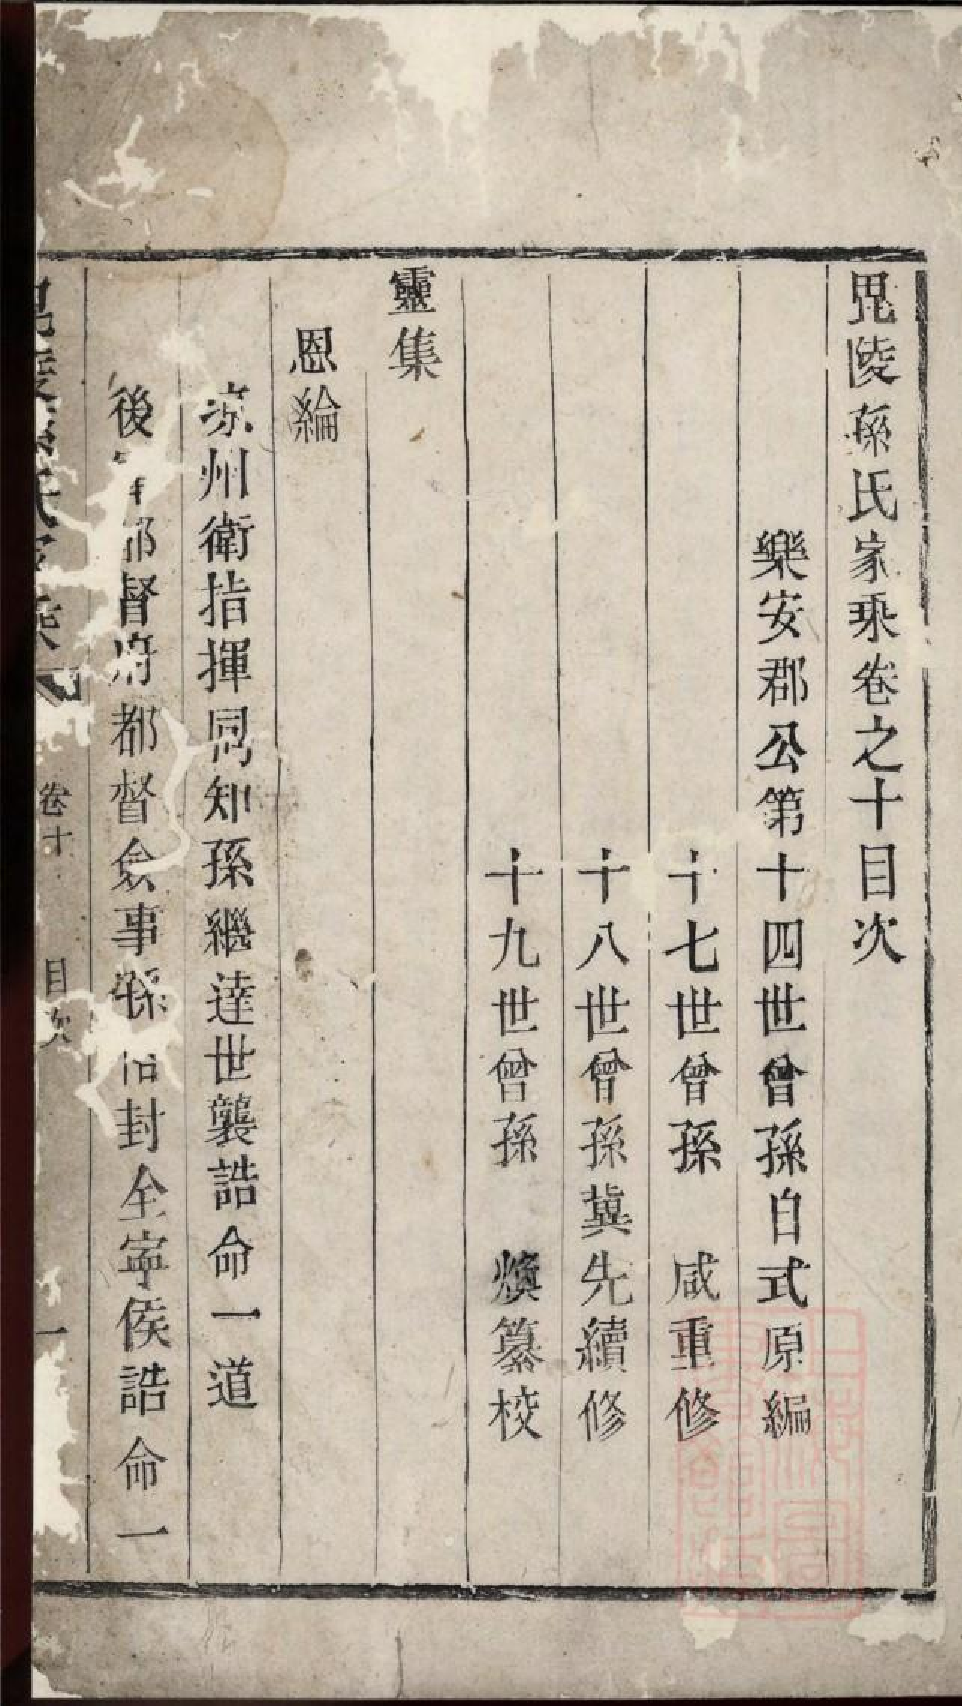 毘陵孫氏家乘卷之十目次
樂安郡公第十四世曾孫自式原編
十七世曾孫 咸重修
十八世曾孫冀先續修
十九世曾孫 煥纂校
靈集
恩綸
涼州衛指揮同知孫繼達世襲誥命一道
後軍都督府都督僉事孫 封全寧侯誥命一
毘陵孫氏家乘 卷十 目次 一